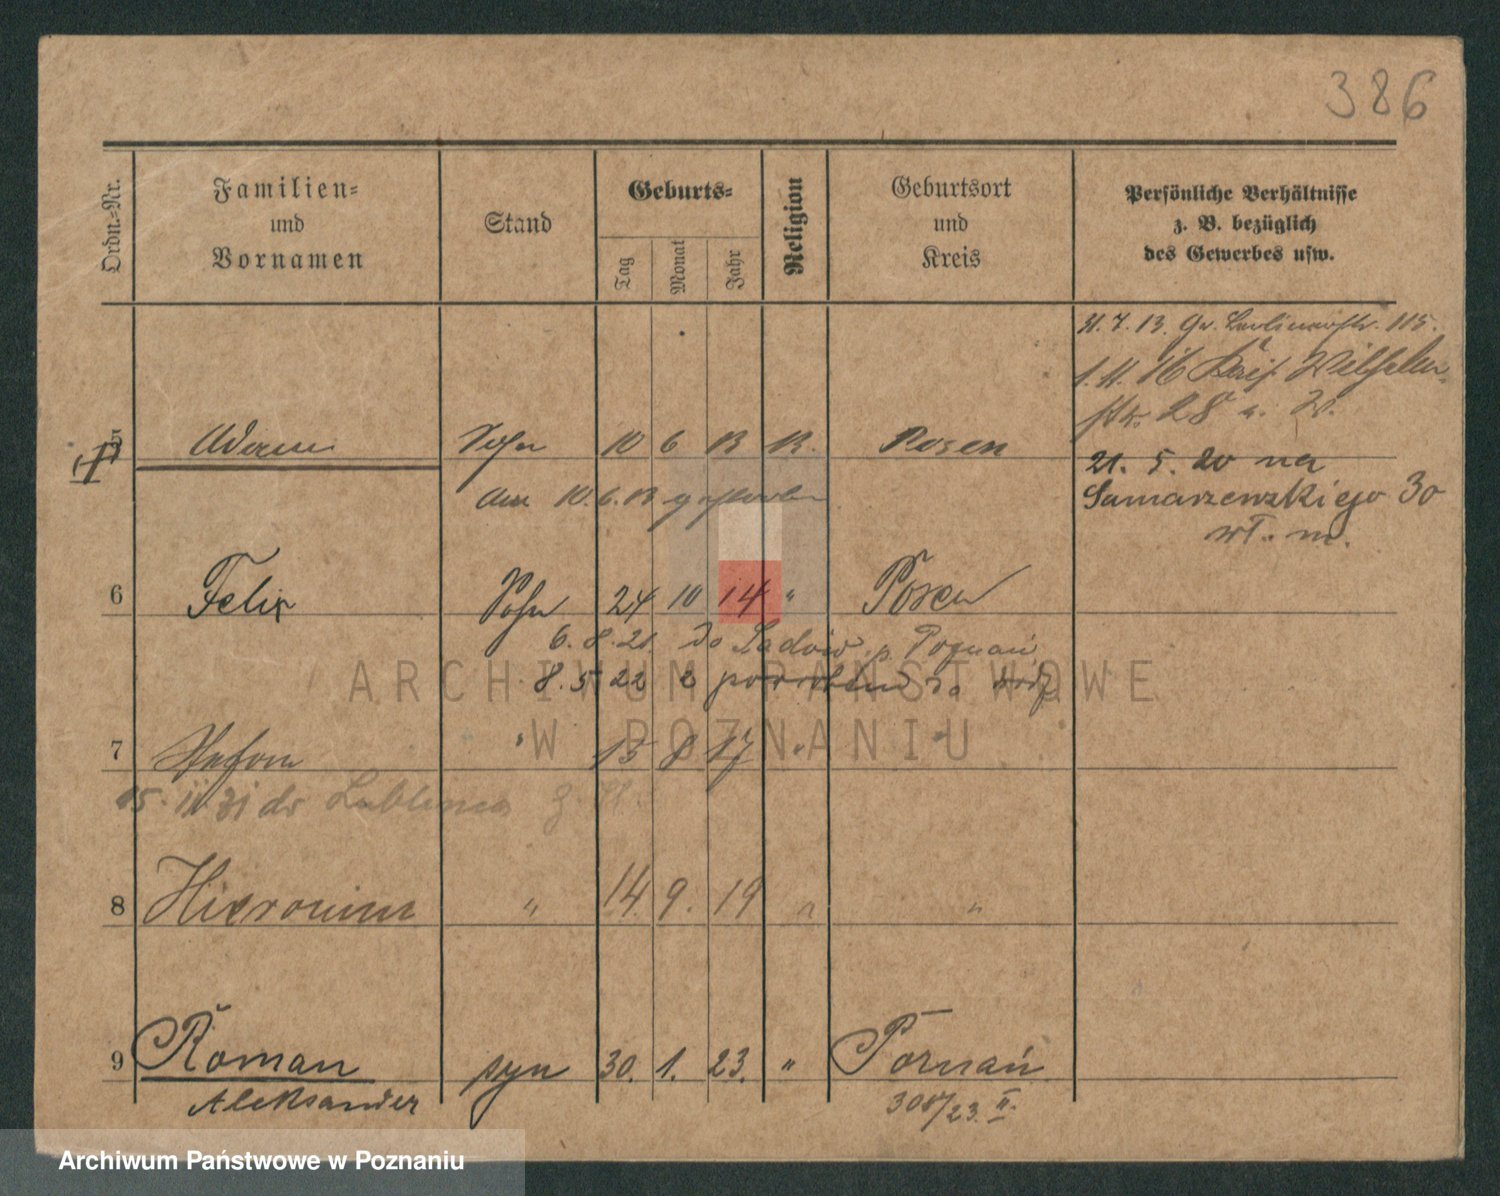 386
Ordn.-Nr.
Familien-
und
Vornamen
Stand
Geburts-
Tag
Monat
Jahr
Religion
Geburtsort
und
Kreis
Persönliche Verhältnisse
z. B. bezüglich
des Gewerbes usw.
31. 7. 13. Gr. Berlinerstr. 115.
1. 11. 16 Wilhelm-
str. 28
5 Adam Sohn 10 6 13 K. Posen
21. 5. 20 na
Samarzewskiego 30
wł. m.
am 10. 6. 13 gestorben
6 Felix Sohn 24 10 14 " Posen
6. 8. 21. do Poznań
8. 5 22 z powrotem
7 Stefan " 15 8 17 " "
15. 11 31 do Lublińca
8 Hieronim " 14. 9. 19 " "
9 Roman syn 30. 1. 23. " Poznań
Aleksander
308/23. II.
ARCHIWUM PAŃSTWOWE
W POZNANIU
Archiwum Państwowe w Poznaniu